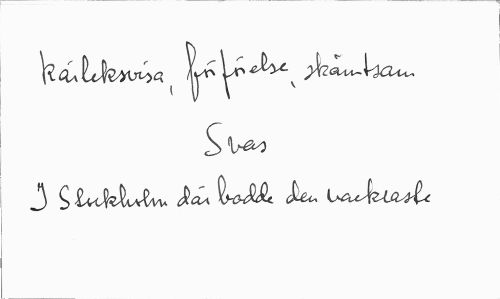 kärleksvisa, förförelse, skämtsam
Svar
I Stockholm där bodde den vackraste